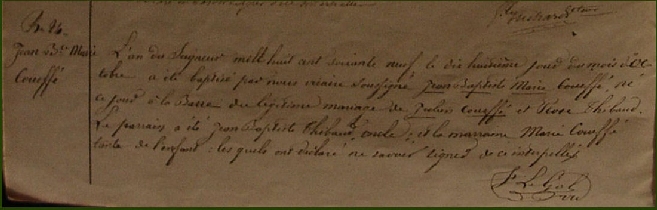 Jean Bte Marie
Coueffé
L'an du Seigneur mil huit cent soixante neuf le dix huitième jour du mois d'Oc-
tobre a été baptisé par nous vicaire soussigné Jean Baptiste Marie Coueffé né
ce jour à la Barre du légitime mariage de Julien Coueffé et Rose Thébaud.
Le parrain a été Jean Baptiste Thébaud, oncle, et la marraine Marie Coueffé
tante de l'enfant : les quels ont déclaré ne savoir signer de ce interpellés
Le Gal
vic